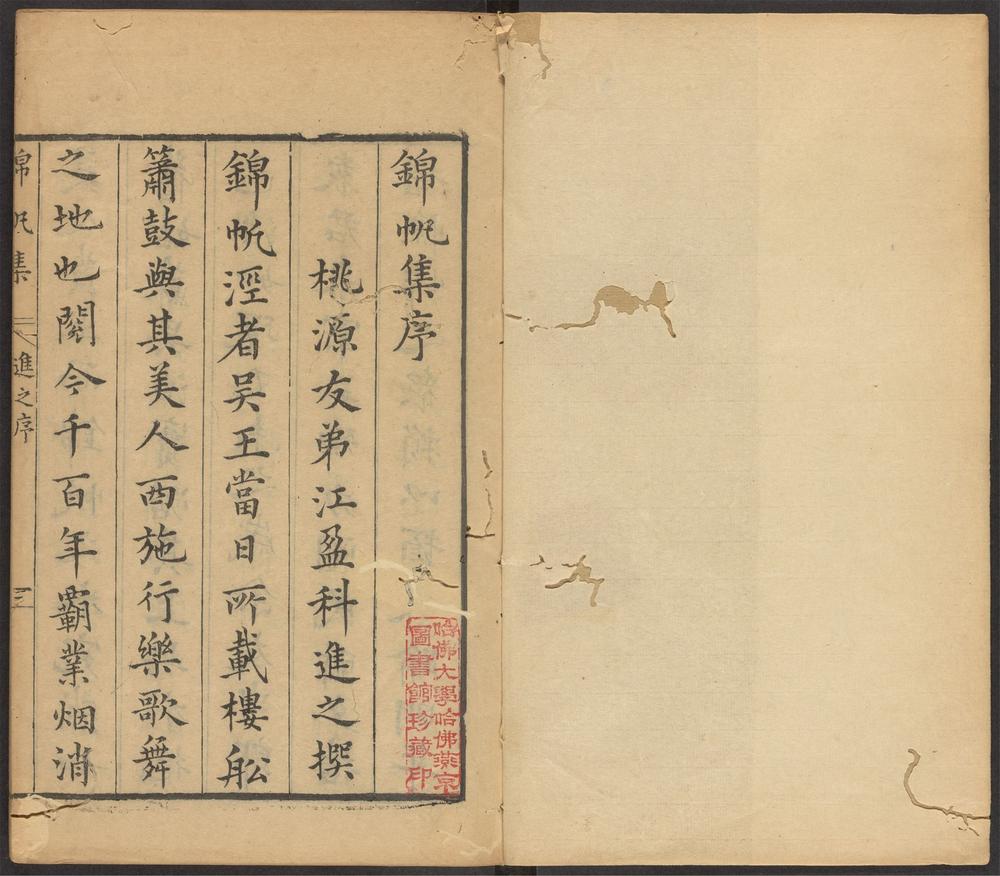 錦帆集序
桃源友弟江盈科進之撰
錦帆涇者吴王當日所載樓舩
簫鼓與其美人西施行樂歌舞
之地也閱今千百年霸業烟消
錦帆集
進之序
一
哈佛大學哈佛燕京
圖書館珍藏印